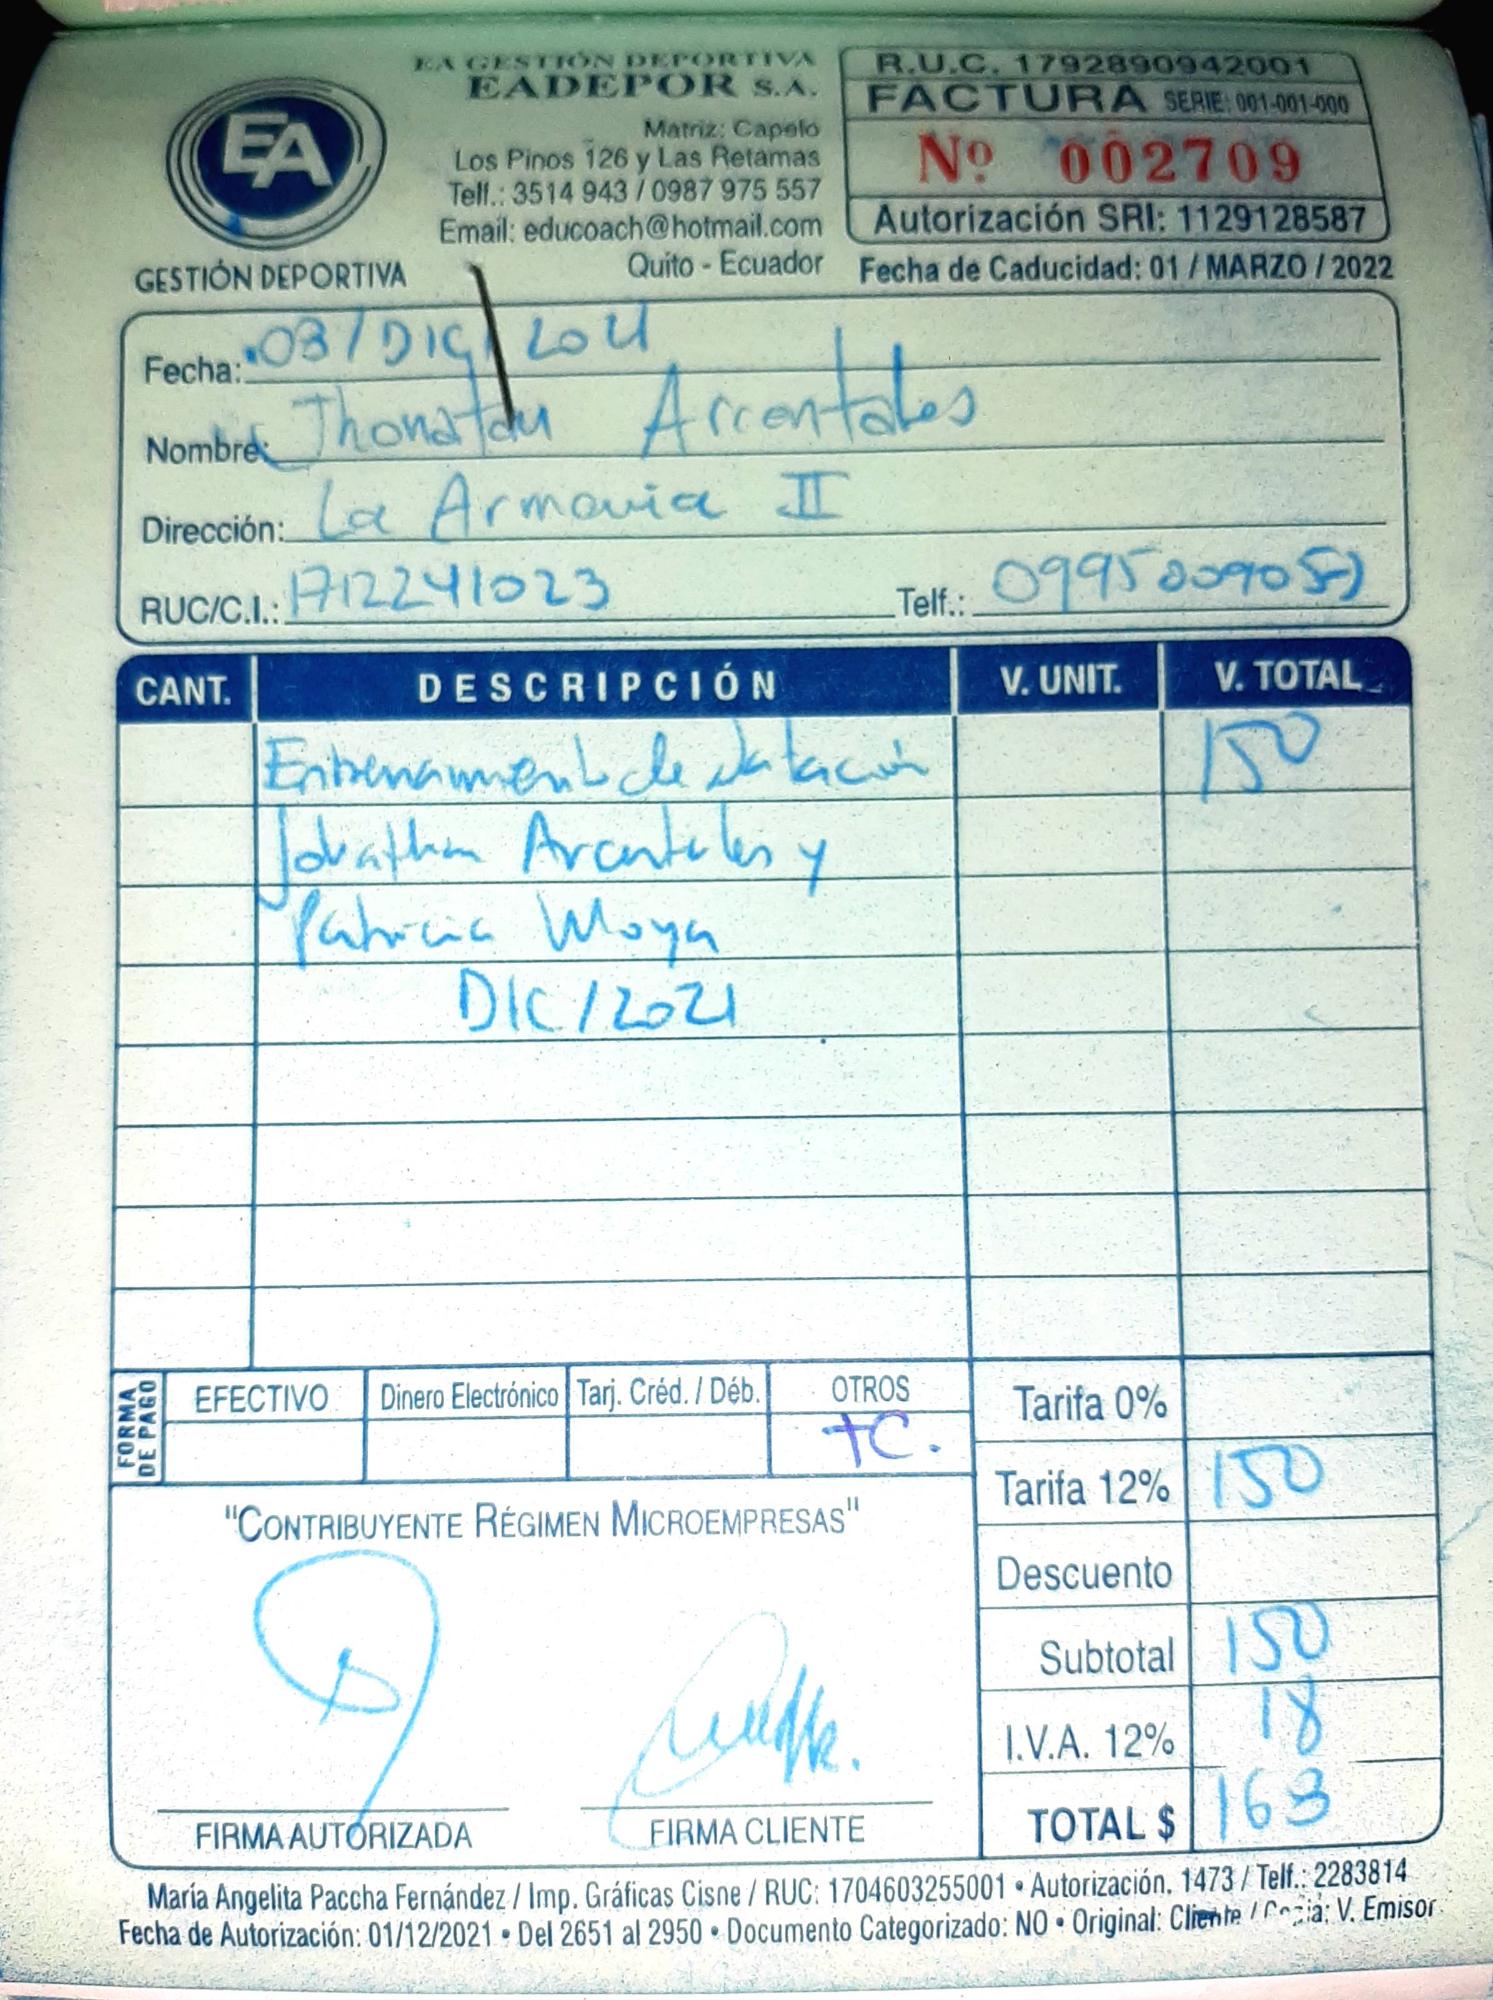 EA GESTIÓN DEPORTIVA
EADEPOR S.A.
EA
GESTIÓN DEPORTIVA
Matriz: Capelo
Los Pinos 126 y Las Retamas
Telf.: 3514 943 / 0987 975 557
Email: educoach@hotmail.com
Quito - Ecuador
R.U.C. 1792890942001
FACTURA SERIE: 001-001-000
Nº 002709
Autorización SRI: 1129128587
Fecha de Caducidad: 01 / MARZO / 2022
Fecha: 03/DIC/2021
Nombre: Jhonatan Arcentales
Dirección: La Armonia II
RUC/C.I.: 1712241023 Telf.:
CANT. DESCRIPCIÓN V. UNIT. V. TOTAL
Entrenamiento de Natación 150
Jonathan Arcentales y
Patricia Moya
DIC/2021
FORMA DE PAGO EFECTIVO Dinero Electrónico Tarj. Créd. / Déb. OTROS
TC.
Tarifa 0%
Tarifa 12% 150
Descuento
Subtotal 150
I.V.A. 12% 18
TOTAL $ 163
"CONTRIBUYENTE RÉGIMEN MICROEMPRESAS"
FIRMA AUTORIZADA FIRMA CLIENTE
María Angelita Paccha Fernández / Imp. Gráficas Cisne / RUC: 1704603255001 • Autorización. 1473 / Telf.: 2283814
Fecha de Autorización: 01/12/2021 • Del 2651 al 2950 • Documento Categorizado: NO • Original: Cliente / Copia: V. Emisor